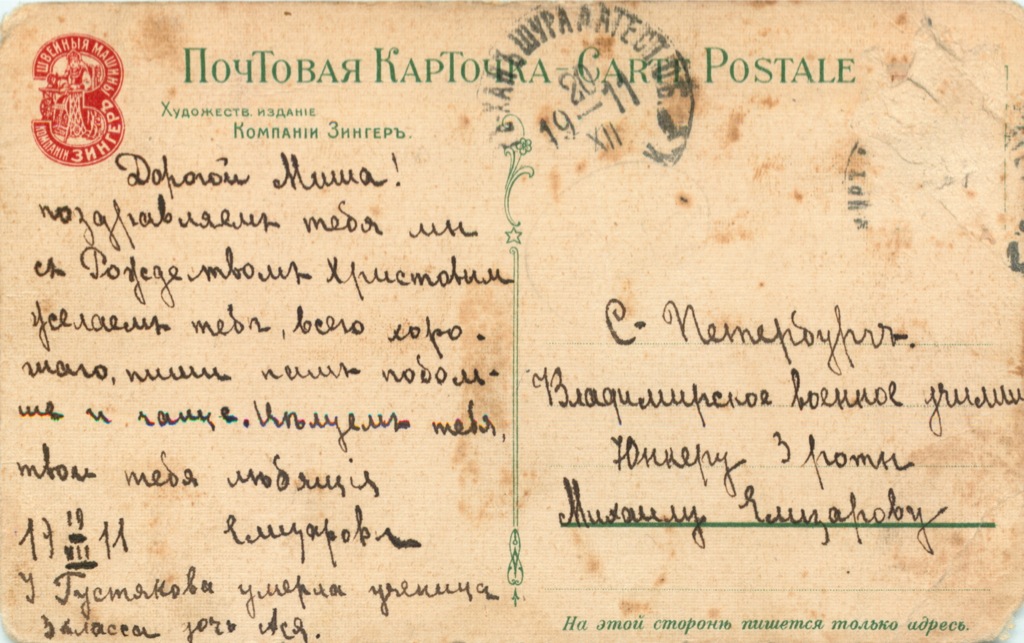 ШВЕЙНЫЯ МАШИНЫ
КОМПАНІИ ЗИНГЕРЪ
ПОЧТОВАЯ КАРТОЧКА CARTE POSTALE
Художеств. изданіе
Компаніи Зингеръ.
ШУРА ДАГЕСТ.
20
19 — 11
XII
Дорогой Миша!
поздравляемъ тебя мы
съ Рождествомъ Христовым
желаемъ тебѣ, всего хоро-
шаго, пиши намъ поболь-
ше и чаще. Цѣлуемъ тебя,
твои тебя любящія
19 19 11
XII
Елизаровы
У Густякова умерла ученица
3 класса дочь Ася.
С-Петербургъ.
Владимирское военное учили
Юнкеру 3 роты
Михаилу Елизарову
На этой сторонѣ пишется только адресъ.